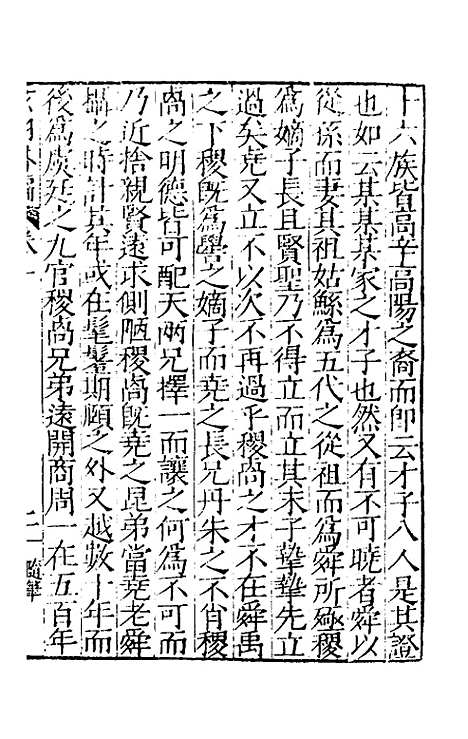 十六族皆高辛高陽之裔而卽云才子八人是其證
也如云某某某家之才子也然又有不可曉者舜以
從孫而妻其祖姑鯀爲五代之從祖而爲舜所殛稷
爲嫡子長且賢聖乃不得立而立其末子摯摯先立
過矣堯又立不以次不再過乎稷卨之才不在舜禹
之下稷旣爲嚳之嫡子而堯之長兄丹朱之不肖稷
卨之明德皆可配天兩兄擇一而讓之何爲不可而
乃近捨親賢遠求側陋稷卨旣堯之昆弟當堯老舜
攝之時計其年或在髦耋期頤之外又越數十年而
後爲虞廷之九官稷卨兄弟遠開商周一在五百年
卷一
二
隨筆